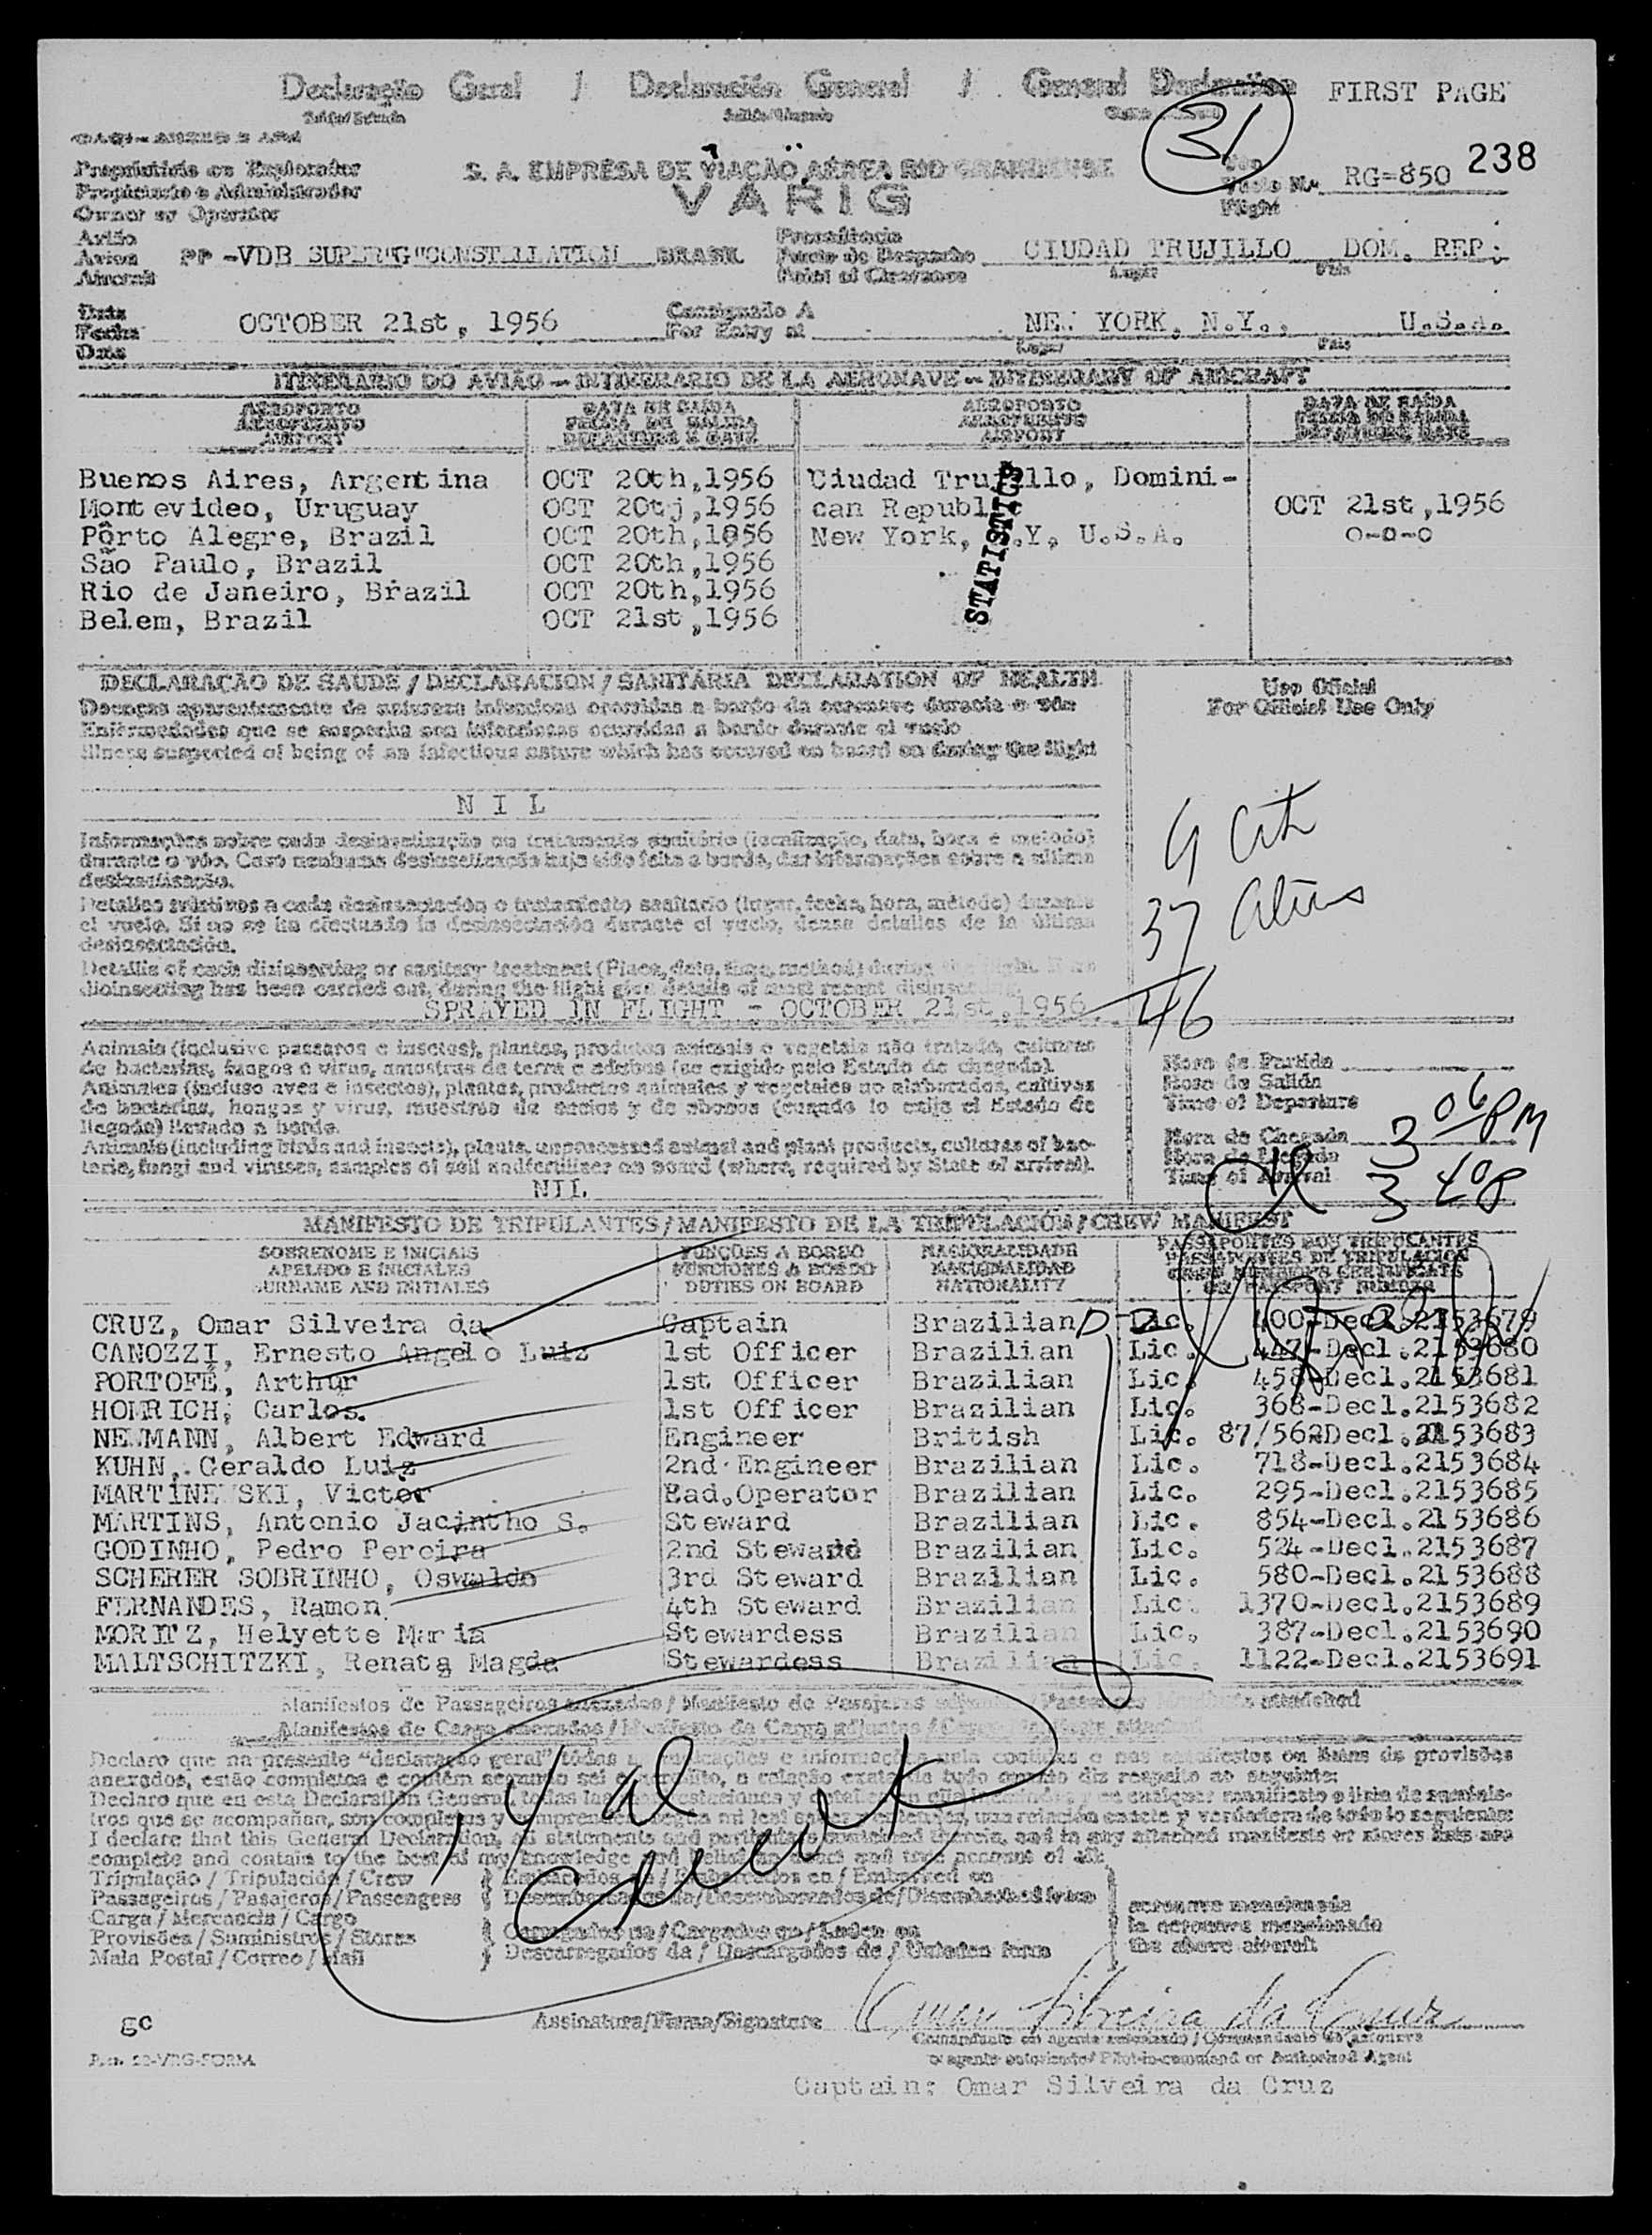 Declaração Geral / Declaración General / General Declaration FIRST PAGE
31
238
Proprietário ou Explorador
Propietario o Administrador
Owner or Operator
S. A. EMPRÊSA DE VIAÇÃO AÉREA RIO GRANDENSE
VARIG
Flight RG-850
Avião
Avion
Aircraft
PP -VDB SUPER"G"CONSTELLATION BRASIL
Procedência
Punto de Despacho
Point of Clearance
CIUDAD TRUJILLO DOM. REP.
Lugar País
Data
Fecha
Date
OCTOBER 21st, 1956
Consignado A
For Entry at
NEW YORK, N.Y., U.S.A.
Lugar País
ITINERARIO DO AVIÃO - INTINERARIO DE LA AERONAVE - INTINERARY OF AIRCRAFT
AEROPORTO
AEROPUERTO
AIRPORT
DATA DE SAÍDA
FECHA DE SALIDA
DEPARTURE DATE
AEROPORTO
AEROPUERTO
AIRPORT
DATA DE SAÍDA
FECHA DE SALIDA
DEPARTURE DATE
Buenos Aires, Argentina OCT 20th,1956 Ciudad Trujillo, Domini-
Montevideo, Uruguay OCT 20tj,1956 can Republ OCT 21st,1956
Pôrto Alegre, Brazil OCT 20th,1956 New York, N.Y, U.S.A. 0-0-0
São Paulo, Brazil OCT 20th,1956
Rio de Janeiro, Brazil OCT 20th,1956
Belem, Brazil OCT 21st,1956
STATISTICS
DECLARAÇÃO DE SAUDE / DECLARACION / SANITÁRIA DECLARATION OF HEALTH
Doenças aparentemente de natureza infecciosa ocorridas a bordo da aeronave durante o vôo
Enfermedades que se sospecha son infecciosas ocurridas a bordo durante el vuelo
Illness suspected of being of an infectious nature which has occured on board on during the flight
N I L
Uso Oficial
For Official Use Only
9 Cit
37 Aliens
46
Informações sobre cada desinsetização ou tratamento sanitário (localização, data, hora e metodo)
durante o vôo. Caso nenhuma desinsetização haja sido feita a bordo, dar informações sobre a última
desinsetização.
Detalles relativos a cada desinsectación o tratamiento sanitario (lugar, fecha, hora, método) durante
el vuelo. Si no se ha efectuado la desinsectación durante el vuelo, dense detalles de la última
desinsectación.
Detaills of each disinsecting or sanitary treatment (Place, date, time, method) during the flight. If no
disinsecting has been carried out, during the flight give details of most recent disinsecting.
SPRAYED IN FLIGHT - OCTOBER 21st,1956
Animais (inclusive passaros e insetos), plantas, produtos animais e vegetais não tratado, culturas
de bacterias, fungos e virus, amostras de terra e adubos (se exigido pelo Estado de chegada).
Animales (incluso aves e insectos), plantas, productos animales y vegetales no elaborados, cultivos
de bacterias, hongos y virus, muestras de suelos y de abonos (cuando lo exija el Estado de
llegada) llevado a bordo.
Animals (including birds and insects), plants, unprocessed animal and plant products, cultures of bac-
teria, fungi and viruses, samples of soil andfertilizer on board (where, required by State of arrival).
NIL
Hora de Partida
Hora de Salida
Time of Departure
Hora de Chegada
Hora de Llegada
Time of Arrival
3 06 PM
3 40 P
MANIFESTO DE TRIPULANTES / MANIFIESTO DE LA TRIPULACIÓN / CREW MANIFEST
SOBRENOME E INICIAIS
APELIDO E INICIALES
SURNAME AND INITIALES
FUNÇÕES A BORDO
FUNCIONES A BORDO
DUTIES ON BOARD
NACIONALIDADE
NACIONALIDAD
NATIONALITY
PASSAPORTES DOS TRIPULANTES
PASSAPORTES DE TRIPULACION
CREW MEMBERS CERTIFICATE
OR PASSPORT NUMBER
CRUZ, Omar Silveira da Captain Brazilian D-2 Lic. 400-Decl.2153679
CANOZZI, Ernesto Angelo Luiz 1st Officer Brazilian Lic. 447-Decl.2153680
PORTOFÉ, Arthur 1st Officer Brazilian Lic. 458-Decl.2153681
HOMRICH, Carlos. 1st Officer Brazilian Lic. 368-Decl.2153682
NEWMANN, Albert Edward Engineer British Lic. 87/562Decl.2153683
KUHN, Geraldo Luiz 2nd Engineer Brazilian Lic. 718-Decl.2153684
MARTINEWSKI, Victor Rad.Operator Brazilian Lic. 295-Decl.2153685
MARTINS, Antonio Jacintho S. Steward Brazilian Lic. 854-Decl.2153686
GODINHO, Pedro Pereira 2nd Steward Brazilian Lic. 524-Decl.2153687
SCHERER SOBRINHO, Oswaldo 3rd Steward Brazilian Lic. 580-Decl.2153688
FERNANDES, Ramon 4th Steward Brazilian Lic. 1370-Decl.2153689
MORITZ, Helyette Maria Stewardess Brazilian Lic. 387-Decl.2153690
MALTSCHITZKI, Renata Magda Stewardess Brazilian Lic. 1122-Decl.2153691
Manifestos de Passageiros anexados / Manifiesto de Pasajeros adjuntos / Passenger Manifests attached
Manifestos de Carga anexados / Manifiesto de Carga adjuntos / Cargo Manifests attached
Declaro que na presente "declaração geral" tôdas as indicações e informações nela contidas e nos manifestos ou listas de provisões
anexados, estão completos e contêm segundo sei e acredito, a relação exata de tudo quanto diz respeito ao seguinte:
I declare that this General Declaration, all statements and particulars contained therein, and in any attached manifests or stores lists are
complete and contain to the best of my knowledge and belief an exact and true account of all:
Tripulação / Tripulación / Crew
Passageiros / Pasajeros / Passengers
Carga / Mercancia / Cargo
Provisões / Suministros / Stores
Mala Postal / Correo / Mail
Embarcados na / Embarcados en / Embarked on
Desembarcados da/Desembarcados de/Disembarked from
Carregados na / Cargados en / Laden on
Descarregados da / Descargados de / Unladen form
aeronave mencionada
la aeronave mencionado
the above aircraft
gc
Assinatura/Firma/Signature Omar Silveira da Cruz
Comandante ou agente autorizado / Commandante de aeronave
o agente autorizado/ Pilot-in-command or Authorized Agent
Captain: Omar Silveira da Cruz